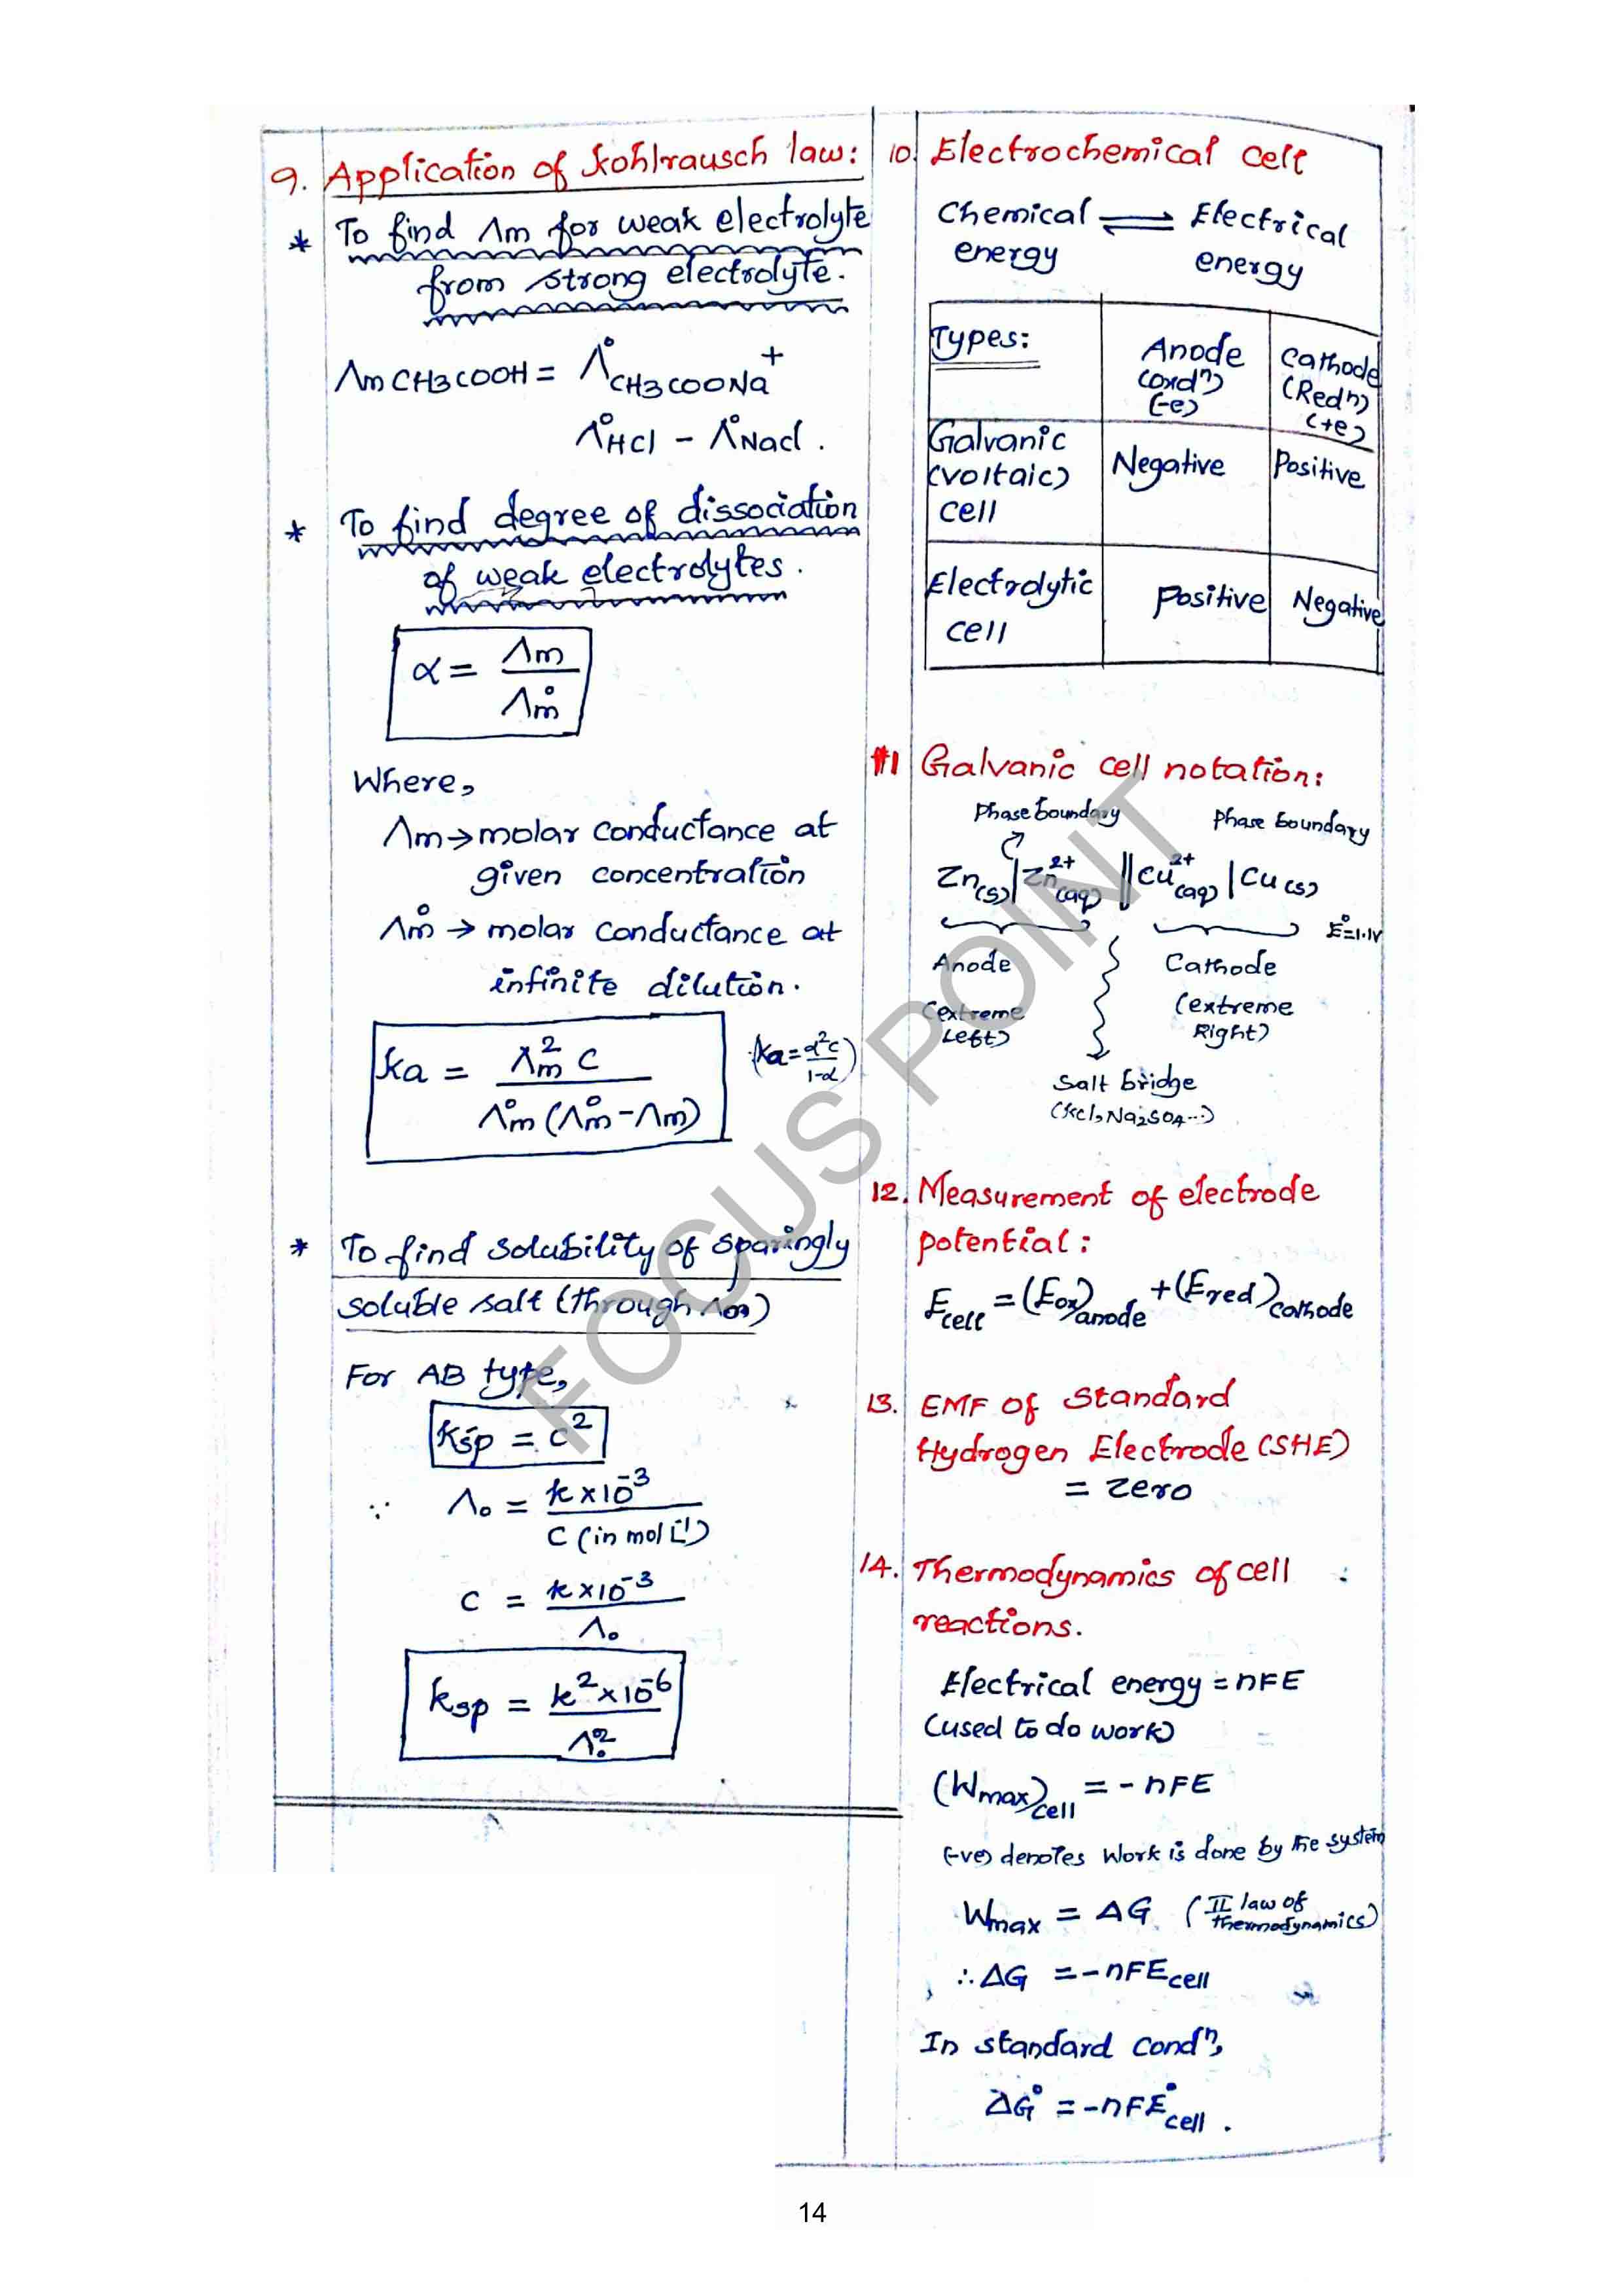 9. Application of kohlrausch law:
* To find Λm for weak electrolyte
from strong electrolyte.
Λm CH3COOH = Λ°CH3COONa +
Λ°HCl - Λ°NaCl.
* To find degree of dissociation
of weak electrolytes.
α = Λm / Λ°m
Where,
Λm → molar conductance at
given concentration
Λ°m → molar conductance at
infinite dilution.
ka = Λm² C / Λ°m (Λ°m - Λm)
(ka = α²c / 1-α)
* To find solubility of sparingly
soluble salt (through Λ∞)
For AB type,
ksp = c²
∵ Λ₀ = k×10⁻³ / C (in mol L⁻¹)
c = k×10⁻³ / Λ₀
ksp = k²×10⁻⁶ / Λ₀²
10. Electrochemical cell
Chemical ⇌ Electrical
energy energy
Types: Anode Cathode
(oxdⁿ) (Redⁿ)
(-e) (+e)
Galvanic Negative Positive
(voltaic)
cell
Electrolytic Positive Negative
cell
#1 Galvanic cell notation:
Phase boundary Phase boundary
Zn(s)|Zn²⁺(aq) || Cu²⁺(aq) | Cu(s)
E°=1.1V
Anode Cathode
(extreme (extreme
Left) Right)
Salt bridge
(KCl, Na₂SO₄...)
12. Measurement of electrode
potential:
Ecell = (Eox)anode + (Ered)cathode
13. EMF of Standard
Hydrogen Electrode (SHE)
= zero
14. Thermodynamics of cell :
reactions.
Electrical energy = nFE
(used to do work)
(Wmax)cell = - nFE
(-ve) denotes work is done by the system
Wmax = ΔG (II law of
thermodynamics)
∴ ΔG = -nFEcell
In standard condⁿ,
ΔG° = -nFE°cell.
FOCUS POINT
14